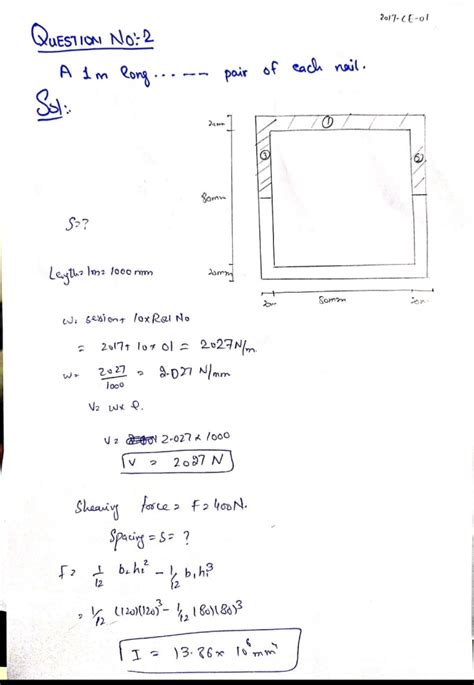 2017-CE-01
QUESTION NO:-2
A 1m long ... --- pair of each nail.
Sol:-
20mm
①
②
②
80mm
S=?
Length= 1m= 1000 mm
20mm
80mm
w= session+ 10xRoll No
= 2017+ 10x01 = 2027N/m
w= 2027/1000 = 2.027 N/mm
V= wx l.
V= 2.027x1000
V = 2027 N
Shearing force = F= 400N.
Spacing = S= ?
I= 1/12 b₂h₂² - 1/12 b₁h₁³
= 1/12 (120)(120)³ - 1/12 (80)(80)³
I = 13.86x 10⁶ mm⁴